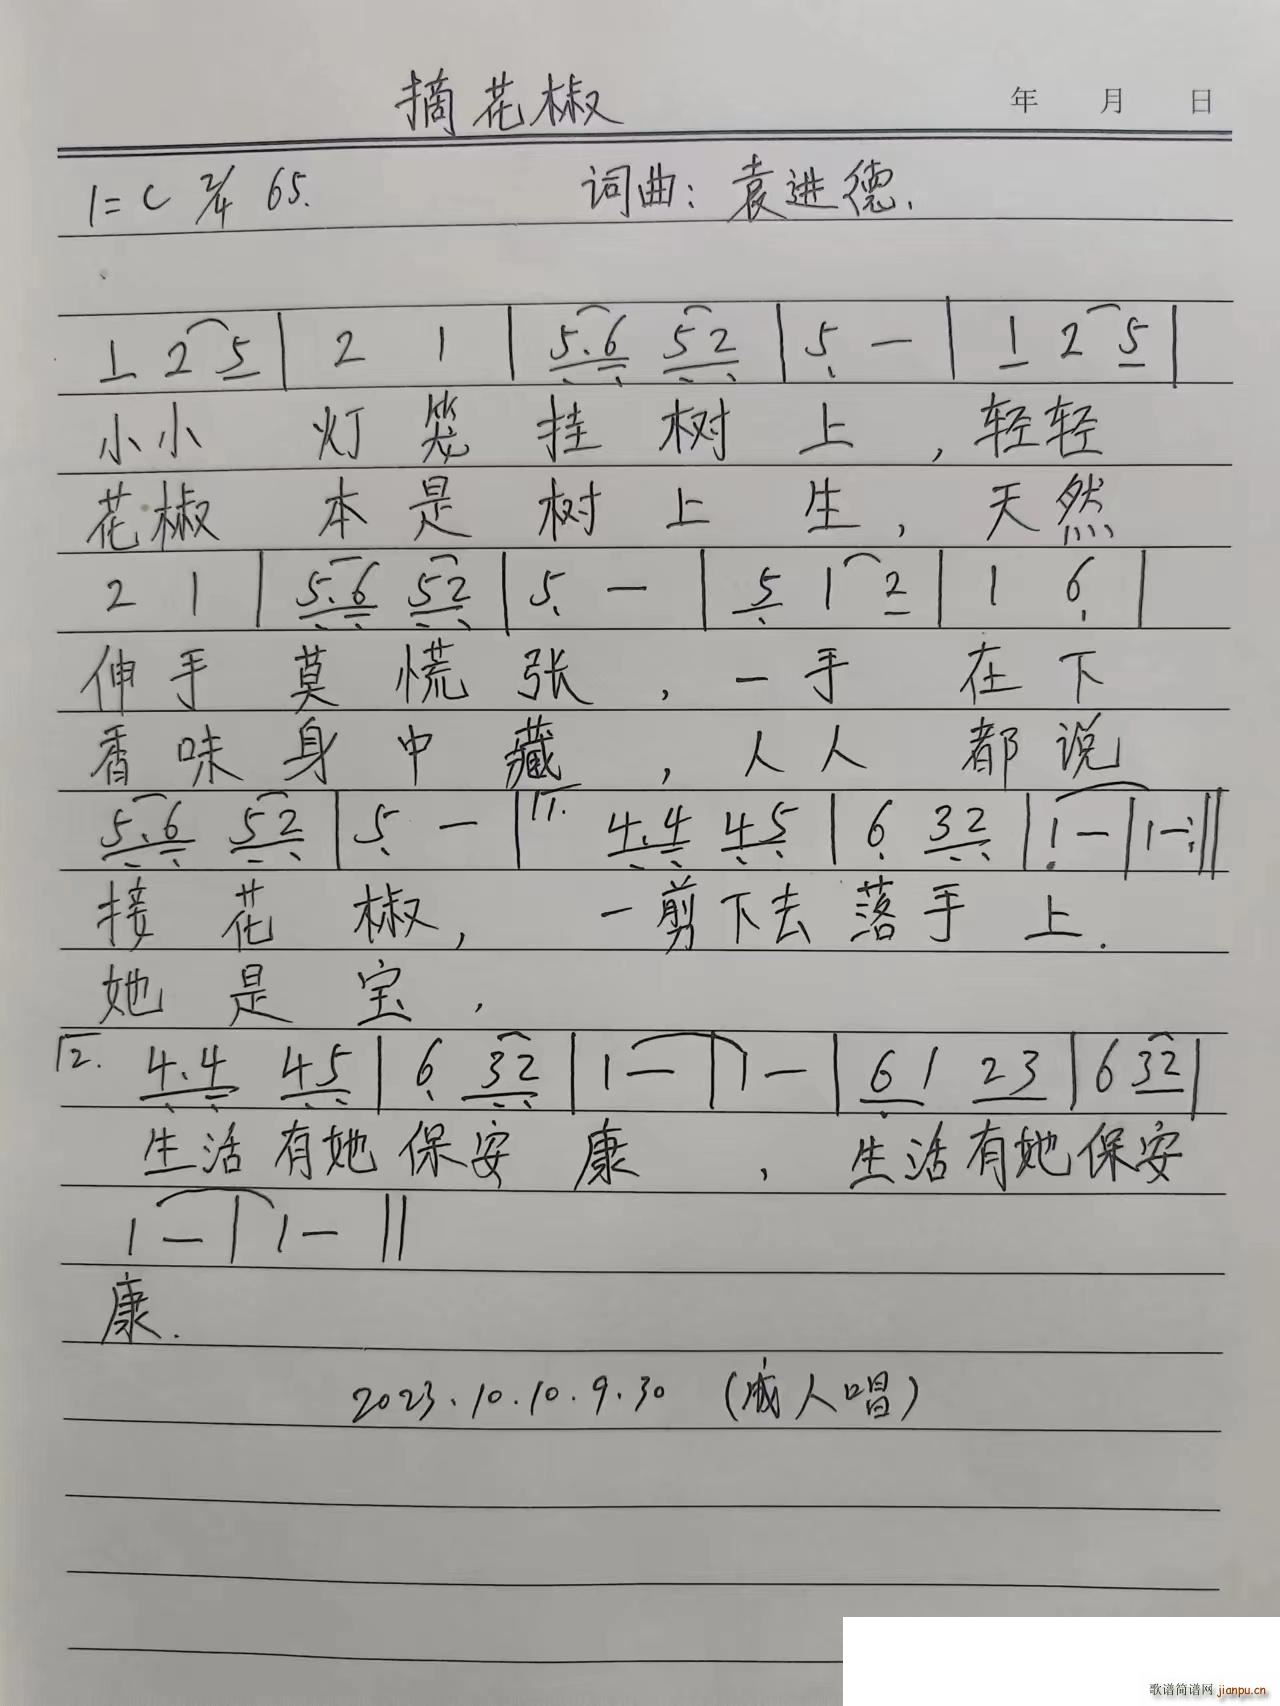 摘花椒
年 月 日
1=C 2/4 65.
词曲：袁进德.
1 2 5 | 2 1 | 5.6 5 2 | 5 — | 1 2 5 |
小小 灯笼 挂树上，轻轻
花椒 本是树上生，天然
2 1 | 5.6 52 | 5 — | 5 1 2 | 1 6 |
伸手莫慌张，一手在下
香味身中藏，人人都说
5.6 52 | 5 — | 1. 4.4 45 | 6 32 | 1 — | 1 — :||
接花椒，一剪下去落手上.
她是宝，
2. 4.4 45 | 6 32 | 1 — | 1 — | 6 1 23 | 6 32 |
生活有她保安康，生活有她保安
1 — | 1 — ||
康.
2023.10.10.9.30 (成人唱)
歌谱简谱网 jianpu.cn